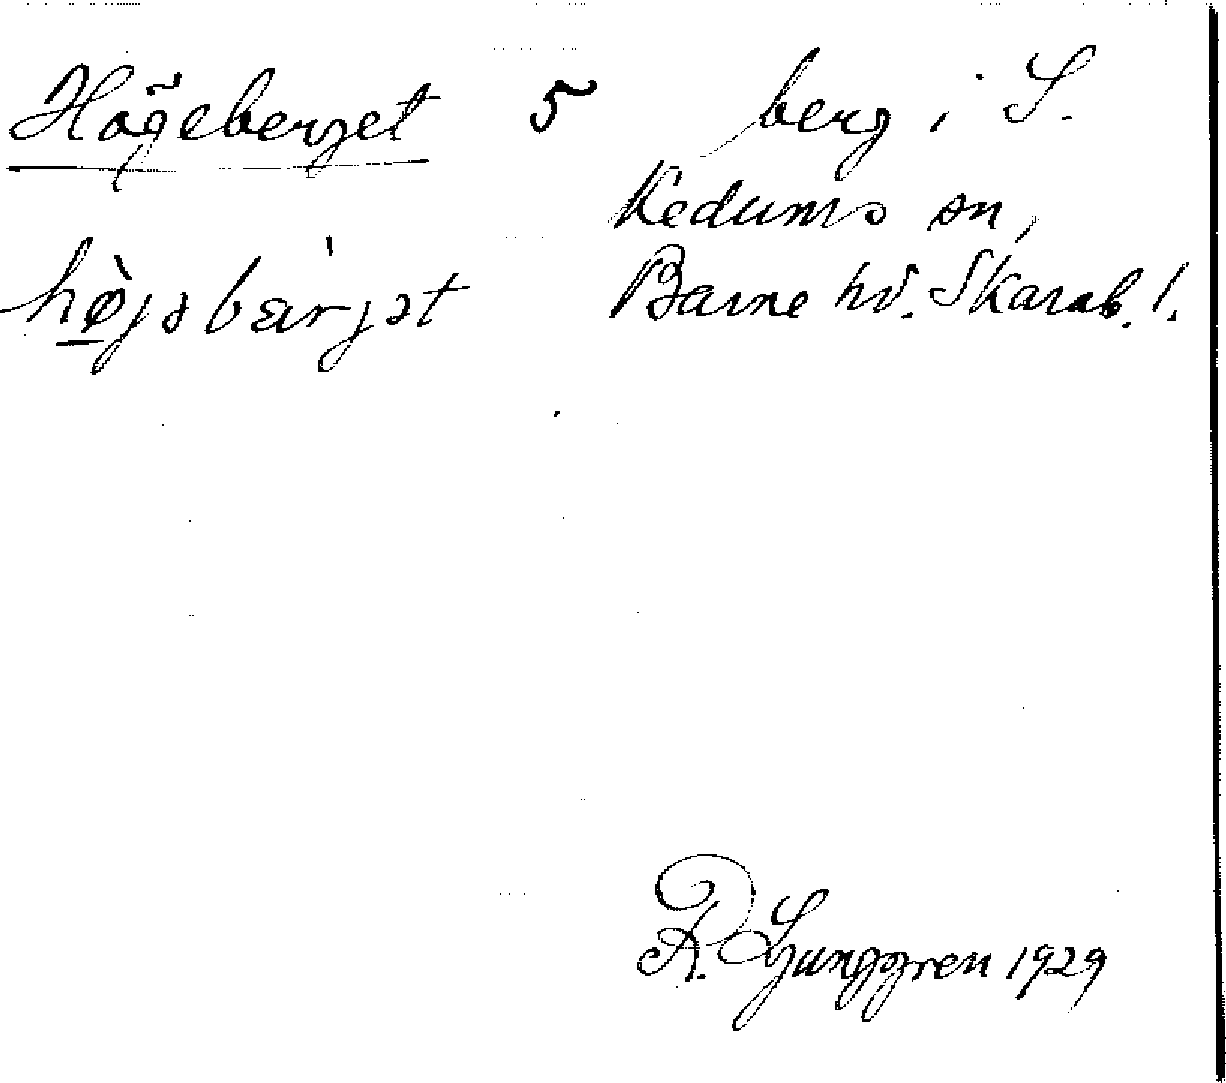 Högeberget 5 berg i S.
Kedums sn,
hø̀jəbär̍jət Barne hd. Skarab. l.
R. Ljunggren 1929